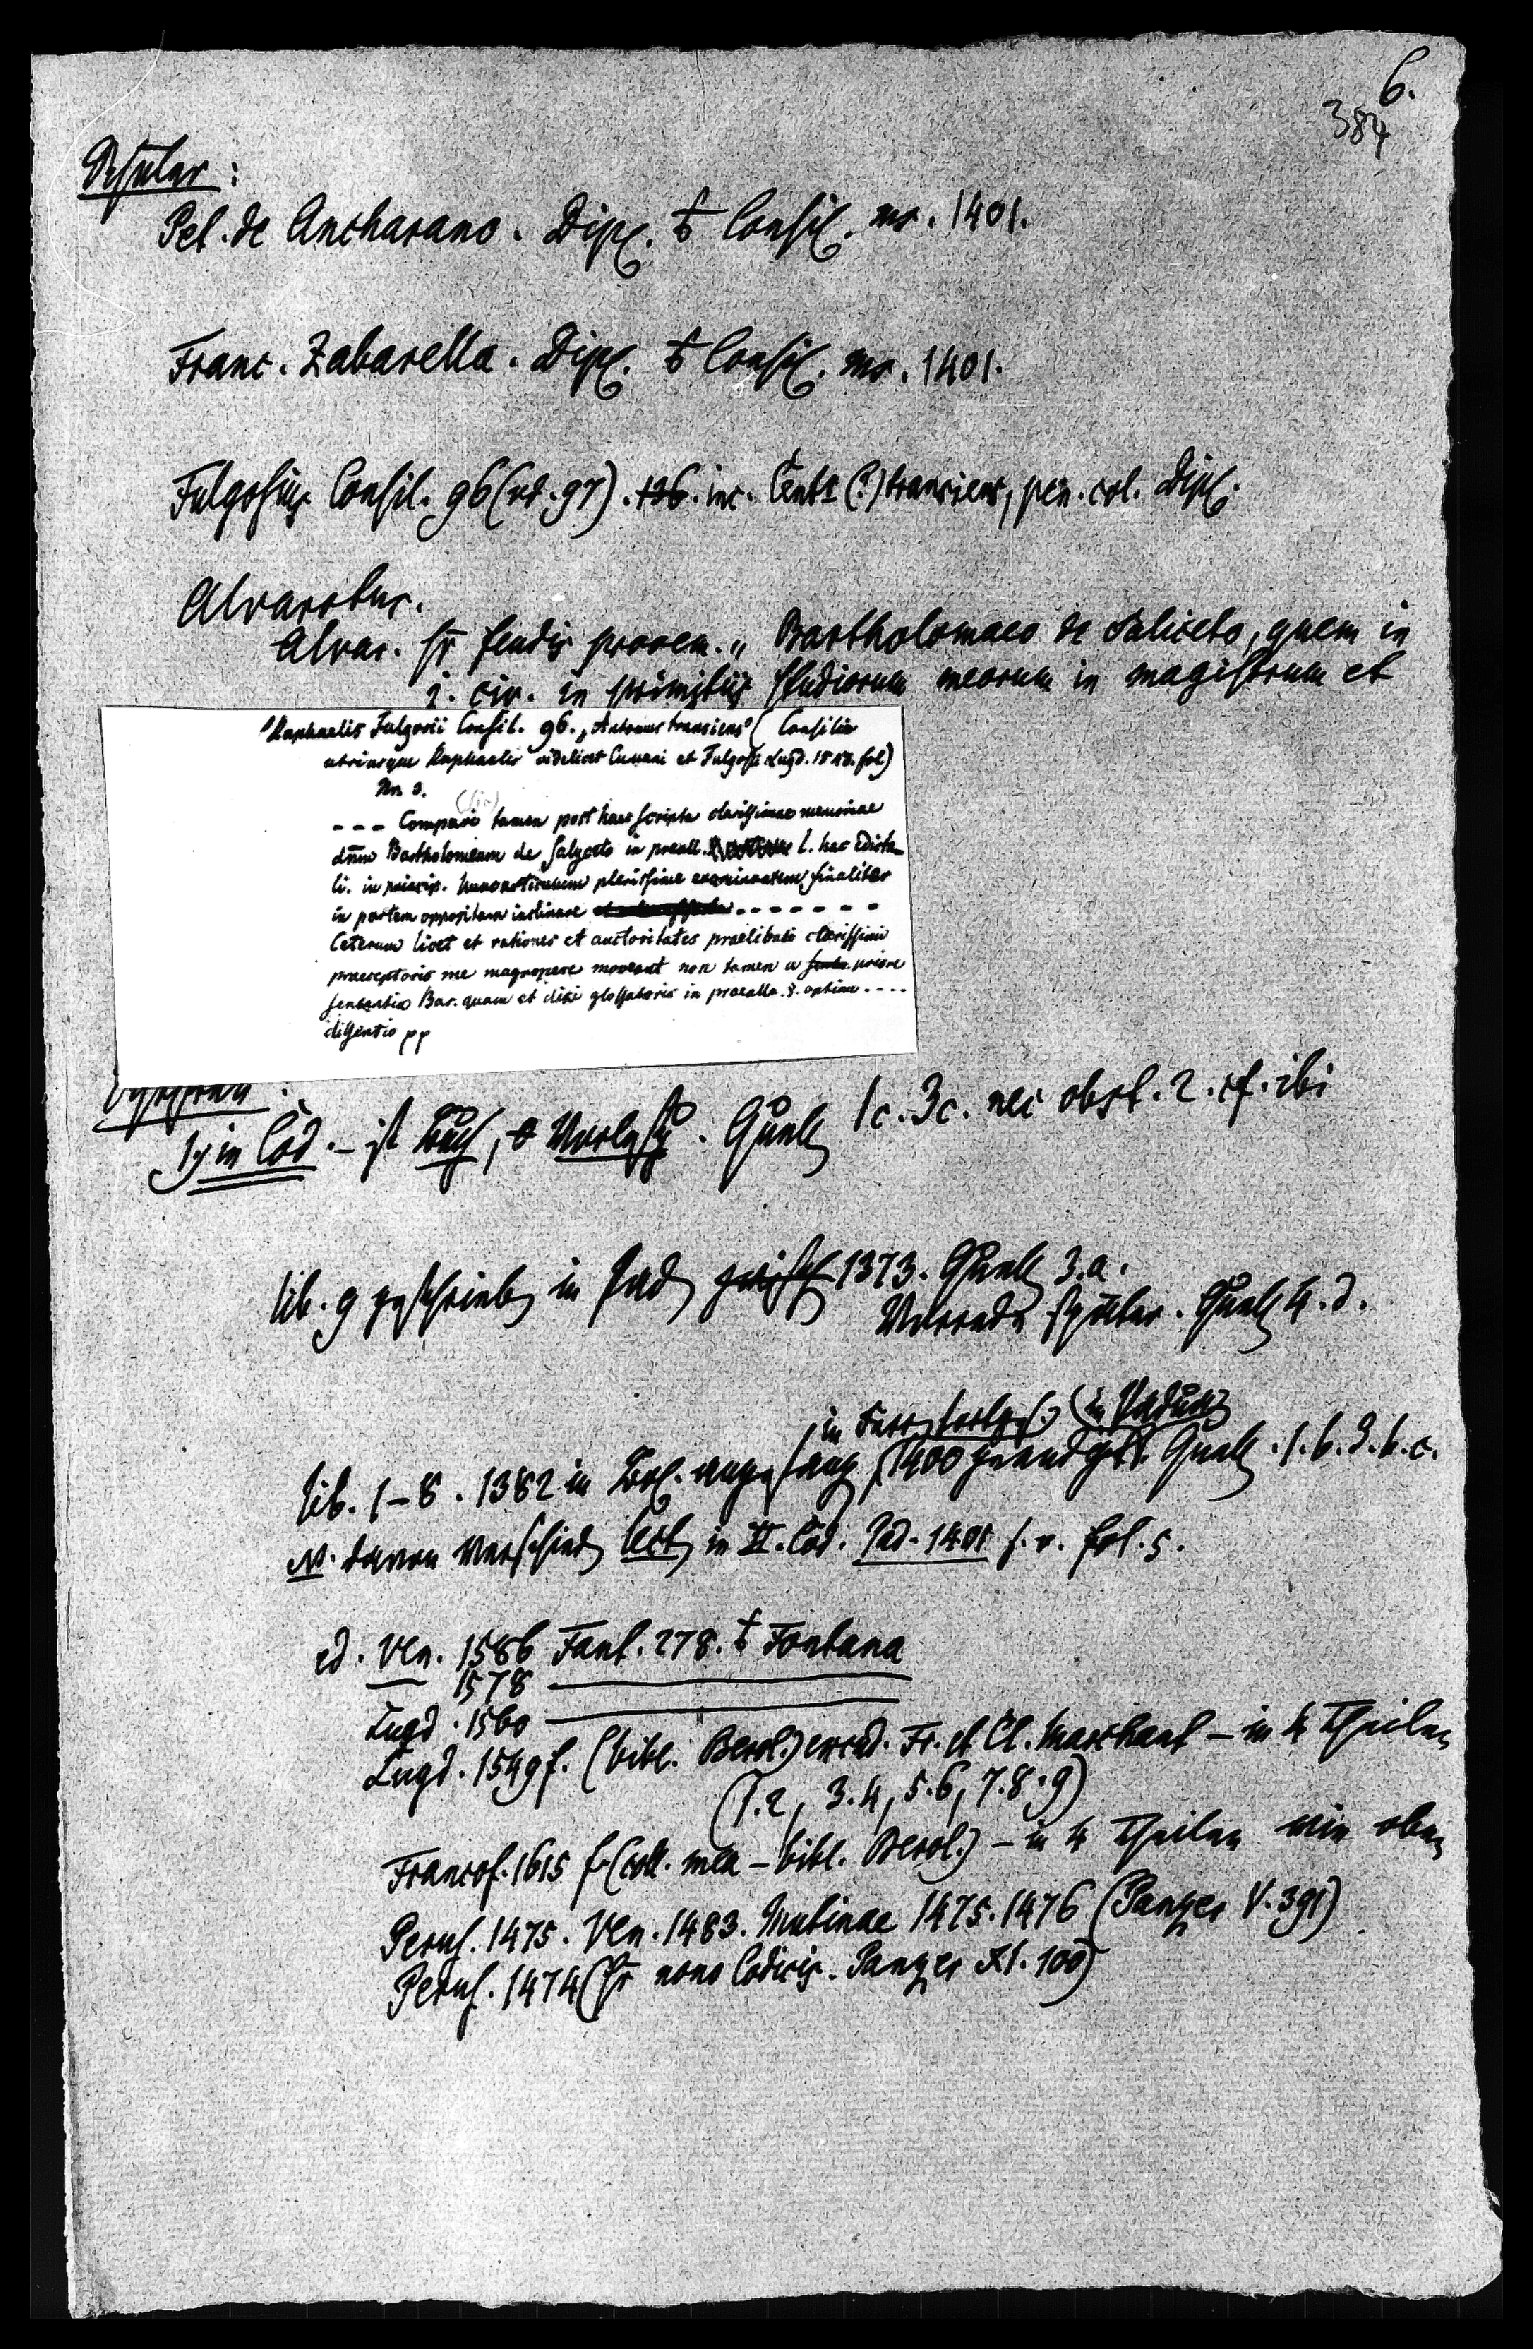 6.
384
Schüler:
Pet. de Ancharano. Dipl. Consil. ms. 1401.
Franc. Zabarella. Dipl. Consil. ms. 1401.
Fulgosius Consil. 96 (ed. 97). 136. inc. (?) transiens, pen. col. Dipl.
Alvarotus.
Alvar. feudis prooem. „ Bartholomaeo de Saliceto, quem in
j. civ. in primitiis studiorum meorum in magistrum et
Raphaelis Fulgosii Consil. 96. „Antonius transiens" (Consilia
utriusque Raphaelis videlicet Cumani et Fulgosii Lugd. 1548. fol)
Nr. 3.
(sic)
--- Comperio tamen post haec scripta clarissimae memoriae
dnm Bartholomeum de Salyceto in praeall. l. hac edicta-
li. in princip. hunc articulum plenissime examinatem finaliter
in partem oppositam inclinare -------
Ceterum licet et rationes et auctoritates praelibati clarissimi
praeceptoris me magnopere moveant non tamen a priore
sententia Bar. quam et dixi glossatoris in praealla. §. optime ----
dissentio pp
1) in Cod. – ist 1c. 3c. nec obst. 2. cf. ibi
lib. 9 geschrieben in 1373. Quell 3.a.
später. Quell 4.d.
lib. 1–8. 1382 in angefang 1400 geendigt. Quell. 1.b.3.b.c.
davon verschied Lect in Cod. Pad. 1401 s. v. fol. 5.
ed. Ven. 1586 Fant. 278. Fontana
1578
Lugd. 1560
Lugd. 1549 f. (bibl. Berol.) excud. Fr. et Cl. Marchant – in 4 Theilen
(1.2, 3.4, 5.6, 7.8.9)
Francof. 1615 f. (coll. mea – bibl. Berol.) – in 4 Theilen wie oben
Perus. 1475. Ven. 1483. Mutinae 1475. 1476 (Panzer V. 391)
Perus. 1474 (nono Codicis. Panzer XI. 100)